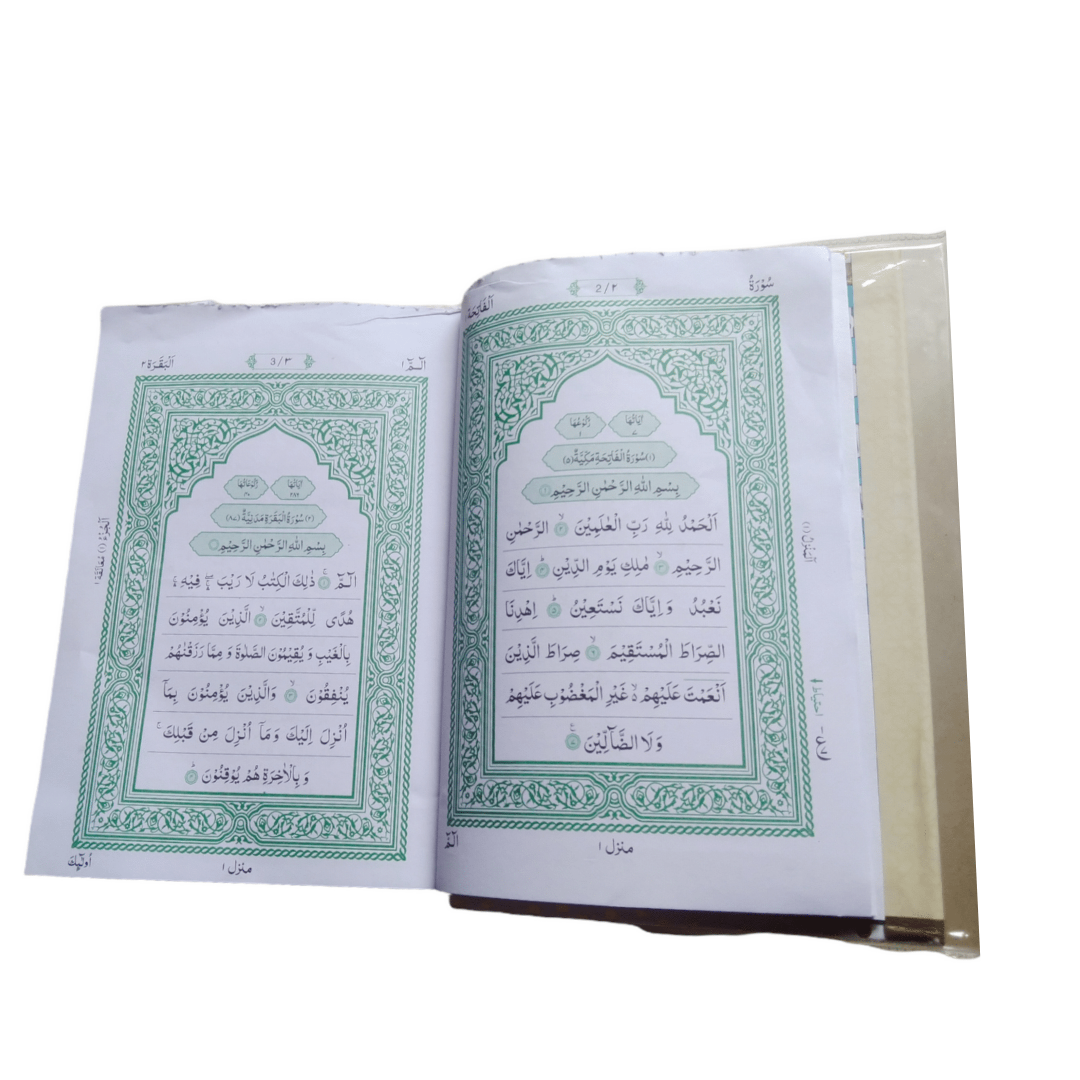 سُوْرَةُ
2/۲
اَلْفَاتِحَة
اٰيَاتُهَا ۷
رُكُوْعُهَا ۱
(۱) سُوْرَةُ الْفَاتِحَةِ مَكِّيَّةٌ (۵)
بِسْمِ اللهِ الرَّحْمٰنِ الرَّحِيْمِ ۱
اَلْحَمْدُ لِلّٰهِ رَبِّ الْعٰلَمِيْنَ ۲ۙ الرَّحْمٰنِ
الرَّحِيْمِ ۳ۙ مٰلِكِ يَوْمِ الدِّيْنِ ۴ؕ اِيَّاكَ
نَعْبُدُ وَاِيَّاكَ نَسْتَعِيْنُ ۵ؕ اِهْدِنَا
الصِّرَاطَ الْمُسْتَقِيْمَ ۶ۙ صِرَاطَ الَّذِيْنَ
اَنْعَمْتَ عَلَيْهِمْ ۙ۬ غَيْرِ الْمَغْضُوْبِ عَلَيْهِمْ
وَلَا الضَّآلِّيْنَ ۷
منزل ۱
الٓمّٓ
اَلْمَنْزِلُ (۱)
الٓمّٓ ۱
3/۳
اَلْبَقَرَة ۲
اٰيَاتُهَا ۲۸۶
رُكُوْعَاتُهَا ۴۰
(۲) سُوْرَةُ الْبَقَرَةِ مَدَنِيَّةٌ (۸۷)
بِسْمِ اللهِ الرَّحْمٰنِ الرَّحِيْمِ
الٓمّٓ ۱ۚ ذٰلِكَ الْكِتٰبُ لَا رَيْبَ ۛۖ فِيْهِ ۛۚ
هُدًى لِّلْمُتَّقِيْنَ ۲ۙ الَّذِيْنَ يُؤْمِنُوْنَ
بِالْغَيْبِ وَ يُقِيْمُوْنَ الصَّلٰوةَ وَ مِمَّا رَزَقْنٰهُمْ
يُنْفِقُوْنَ ۳ۙ وَالَّذِيْنَ يُؤْمِنُوْنَ بِمَآ
اُنْزِلَ اِلَيْكَ وَمَآ اُنْزِلَ مِنْ قَبْلِكَ ۚ
وَ بِالْاٰخِرَةِ هُمْ يُوْقِنُوْنَ ۴ؕ
منزل ۱
اُولٰٓئِكَ
اَلْجُزْءُ (۱) مُعَانَقَة ۱